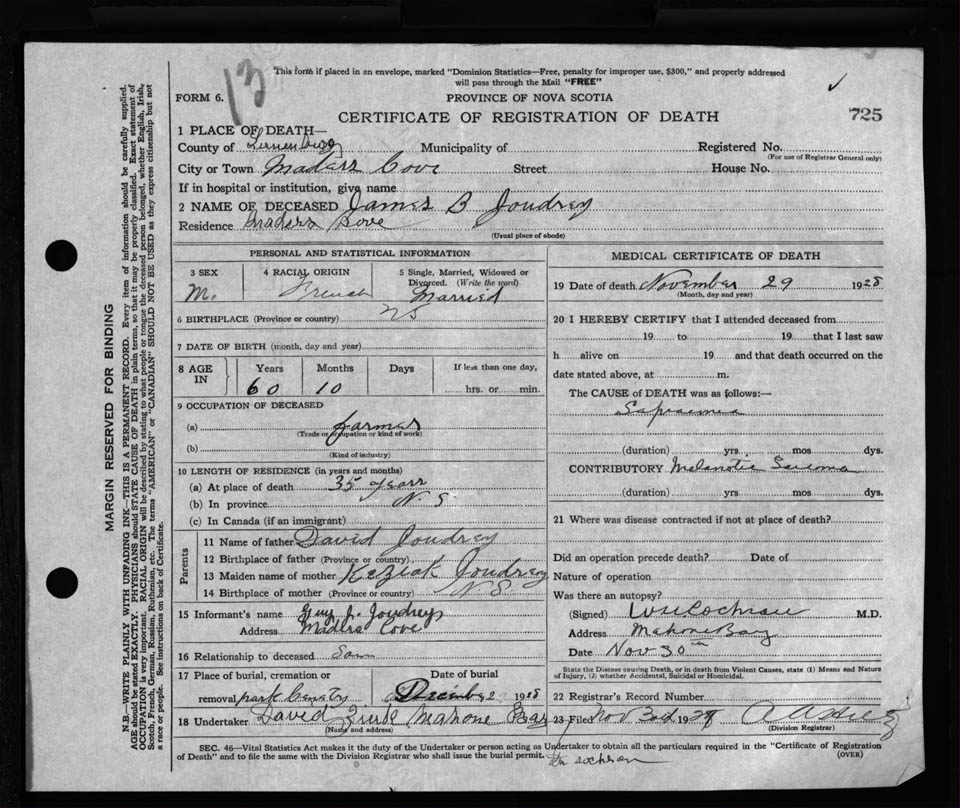 13
This form if placed in an envelope, marked "Dominion Statistics—Free, penalty for improper use, $300," and properly addressed
will pass through the Mail "FREE"
FORM 6.
PROVINCE OF NOVA SCOTIA
CERTIFICATE OF REGISTRATION OF DEATH
725
1 PLACE OF DEATH—
County of Lunenburg Municipality of Registered No.
(For use of Registrar General only)
City or Town Maders Cove Street House No.
If in hospital or institution, give name
2 NAME OF DECEASED James B Joudrey
Residence Maders Cove
(Usual place of abode)
PERSONAL AND STATISTICAL INFORMATION
3 SEX 4 RACIAL ORIGIN 5 Single, Married, Widowed or
Divorced. (Write the word)
M. French Married
6 BIRTHPLACE (Province or country) NS
7 DATE OF BIRTH (month, day and year)
8 AGE IN Years Months Days If less than one day,
60 10 hrs. or min.
9 OCCUPATION OF DECEASED
(a) farmer
(Trade or occupation or kind of work)
(b)
(Kind of industry)
10 LENGTH OF RESIDENCE (in years and months)
(a) At place of death 35 years
(b) In province N.S.
(c) In Canada (if an immigrant)
Parents
11 Name of father David Joudrey
12 Birthplace of father (Province or country)
13 Maiden name of mother Keziah Joudrey
14 Birthplace of mother (Province or country) N.S.
15 Informant's name Guy J. Joudrey
Address Maders Cove
16 Relationship to deceased Son
17 Place of burial, cremation or Date of burial
removal park Cemetry December 2 1928
18 Undertaker David Mahone Bay
(Name and address)
MEDICAL CERTIFICATE OF DEATH
19 Date of death November 29 1928
(Month, day and year)
20 I HEREBY CERTIFY that I attended deceased from
19 to 19 that I last saw
h alive on 19 and that death occurred on the
date stated above, at m.
The CAUSE of DEATH was as follows:—
Sapraemia
(duration) yrs mos dys.
CONTRIBUTORY Melanotic Sarcoma
(duration) yrs mos dys.
21 Where was disease contracted if not at place of death?
Did an operation precede death? Date of
Nature of operation
Was there an autopsy?
(Signed) Cochran M.D.
Address Mahone Bay
Date Nov 30th
State the Disease causing Death, or in death from Violent Causes, state (1) Means and Nature
of Injury, (2) whether Accidental, Suicidal or Homicidal.
22 Registrar's Record Number
23 Filed Nov 30th 1928
(Division Registrar)
SEC. 46—Vital Statistics Act makes it the duty of the Undertaker or person acting as Undertaker to obtain all the particulars required in the "Certificate of Registration
of Death" and to file the same with the Division Registrar who shall issue the burial permit.
(OVER)
MARGIN RESERVED FOR BINDING
N.B.—WRITE PLAINLY WITH UNFADING INK—THIS IS A PERMANENT RECORD. Every item of information should be carefully supplied.
AGE should be stated EXACTLY. PHYSICIANS should STATE CAUSE OF DEATH in plain terms, so that it may be properly classified. Exact statement of
OCCUPATION is very important. RACIAL ORIGIN will be described by stating to what people or tongue the deceased person belonged, whether English, Irish,
Scotch, French, German, Russian, Ruthenian, etc. The terms "AMERICAN" or "CANADIAN" SHOULD NOT BE USED as they express citizenship but not
a race or people. See instructions on back of Certificate.